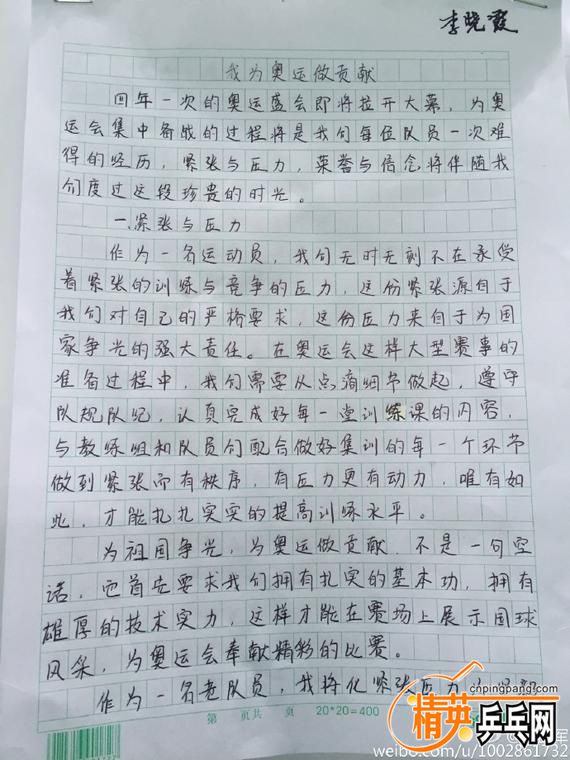 李晓霞
我为奥运做贡献
四年一次的奥运盛会即将拉开大幕，为奥
运会集中备战的过程将是我们每位队员一次难
得的经历，紧张与压力，荣誉与信念将伴随我
们度过这段珍贵的时光。
一.紧张与压力
作为一名运动员，我们无时无刻不在承受
着紧张的训练与竞争的压力，这份紧张源自于
我们对自己的严格要求，这份压力来自于为国
家争光的强大责任。在奥运会这样大型赛事的
准备过程中，我们需要从点滴细节做起，遵守
队规队纪，认真完成好每一堂训练课的内容，
与教练组和队员们配合做好集训的每一个环节
做到紧张而有秩序，有压力更有动力，唯有如
此，才能扎扎实实的提高训练水平。
为祖国争光，为奥运做贡献.不是一句空
话，它首先要求我们拥有扎实的基本功，拥有
雄厚的技术实力，这样才能在赛场上展示国球
风采，为奥运会奉献精彩的比赛。
作为一名老队员，我将化紧张压力为
第 页共 页 20*20=400
cnpingpang.com
精英乒乓网
军
weibo.com/u/1002861732